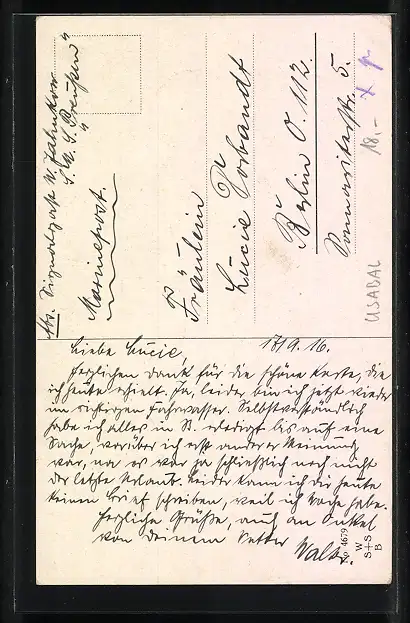 Abs. Signalgast W. Fahnkow
S.M.S. "Preußen"
Marinepost.
Fräulein
Lucie Vorbandt
Berlin O. 112.
Samariterstr. 5.
18,-
USABAL
17./9. 16.
Liebe Lucie,
Herzlichen Dank für die schöne Karte, die
ich heute erhielt. Ja, leider bin ich jetzt wieder
im richtigen Fahrwasser. Selbstverständlich
habe ich alles in B. erledigt bis auf eine
Sache, worüber ich erst anderer Meinung
war, na es war ja schließlich noch nicht
der letzte Urlaub. Leider kann ich dir heute
keinen Brief schreiben, weil ich Wache habe.
Herzliche Grüße, auch an Onkel
von deinem Vetter
Walter.
No 4679
W
S+S
B